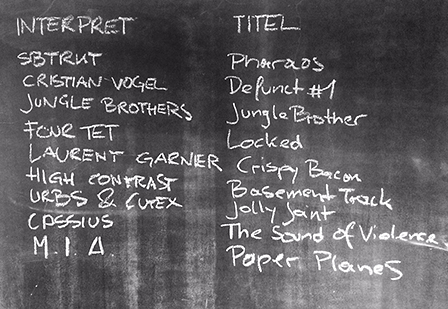 INTERPRET TITEL
SBTRKT Pharaos
CRISTIAN VOGEL Defunct #1
JUNGLE BROTHERS Jungle Brother
FOUR TET Locked
LAURENT GARNIER Crispy Bacon
HIGH CONTRAST Basement Track
URBS & CUTEX Jolly Joint
CASSIUS The Sound of Violence
M.I.A. Paper Planes